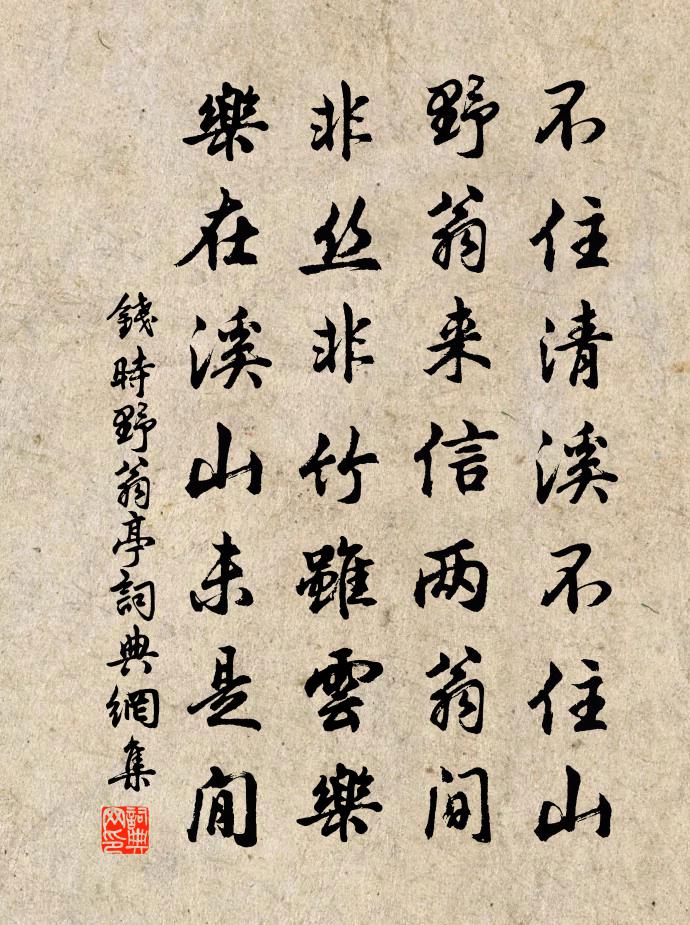 不住清溪不住山
野翁来信两翁间
非丝非竹雖雲樂
樂在溪山未是閒
錢時野翁亭詞典網集
詞典网印